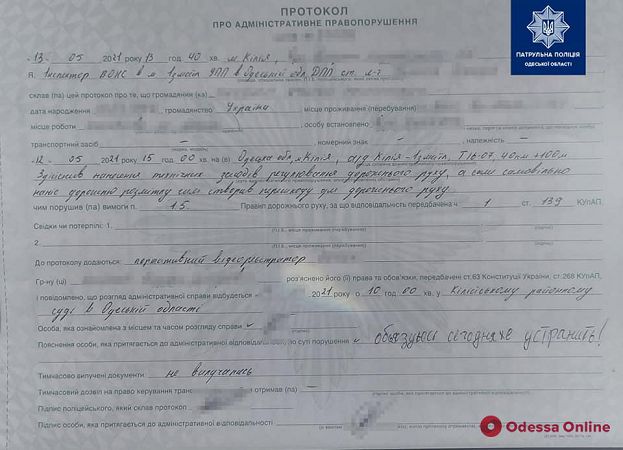 ПРОТОКОЛ
ПРО АДМІНІСТРАТИВНЕ ПРАВОПОРУШЕННЯ
ПАТРУЛЬНА ПОЛІЦІЯ
ОДЕСЬКОЇ ОБЛАСТІ
13. 05 2021 року 13 год 40 хв. м. Кілія,
Я, інспектор в м. Ізмаїл УПП в Одеській обл. ДПП ст. л-т
склав (ла) цей протокол про те, що громадянин (ка)
дата народження громадянство Україна місце проживання (перебування)
місце роботи особу встановлено
транспортний засіб – , номерний знак – , належність –
12. 05 2021 року 15 год 00 хв на (в) Одеська обл, м. Кілія, а/д Кілія-Ізмаїл, Т 16-07, 40 км +100 м
Здійснив технічних засобів регулювання дорожнього руху, а саме самовільно
наніс дорожню розмітку чим створив перешкоду для дорожнього руху
чим порушив (ла) вимоги п. 1.5 Правил дорожнього руху, за що відповідальність передбачена ч 1 ст. 139 КУпАП
Свідки чи потерпілі: 1.
2.
До протоколу додаються: портативний відеореєстратор
Гр-ну (ці) роз'яснено його (її) права та обов'язки, передбачені ст.63 Конституції України, ст.268 КУпАП,
і повідомлено, що розгляд адміністративної справи відбудеться 2021 року о 10 год 00 хв. у Кілійському районному
суді в Одеській області
Особа, яка ознайомлена з місцем та часом розгляду справи
Пояснення особи, яка притягається до адміністративної відповідальності по суті порушення обязуюсь сегодня же устранить!
Тимчасово вилучені документи: не вилучались
Тимчасовий дозвіл на право керування отримав (ла)
Підпис поліцейського, який склав протокол
Підпис особи, яка притягається до адміністративної відповідальності
Odessa Online